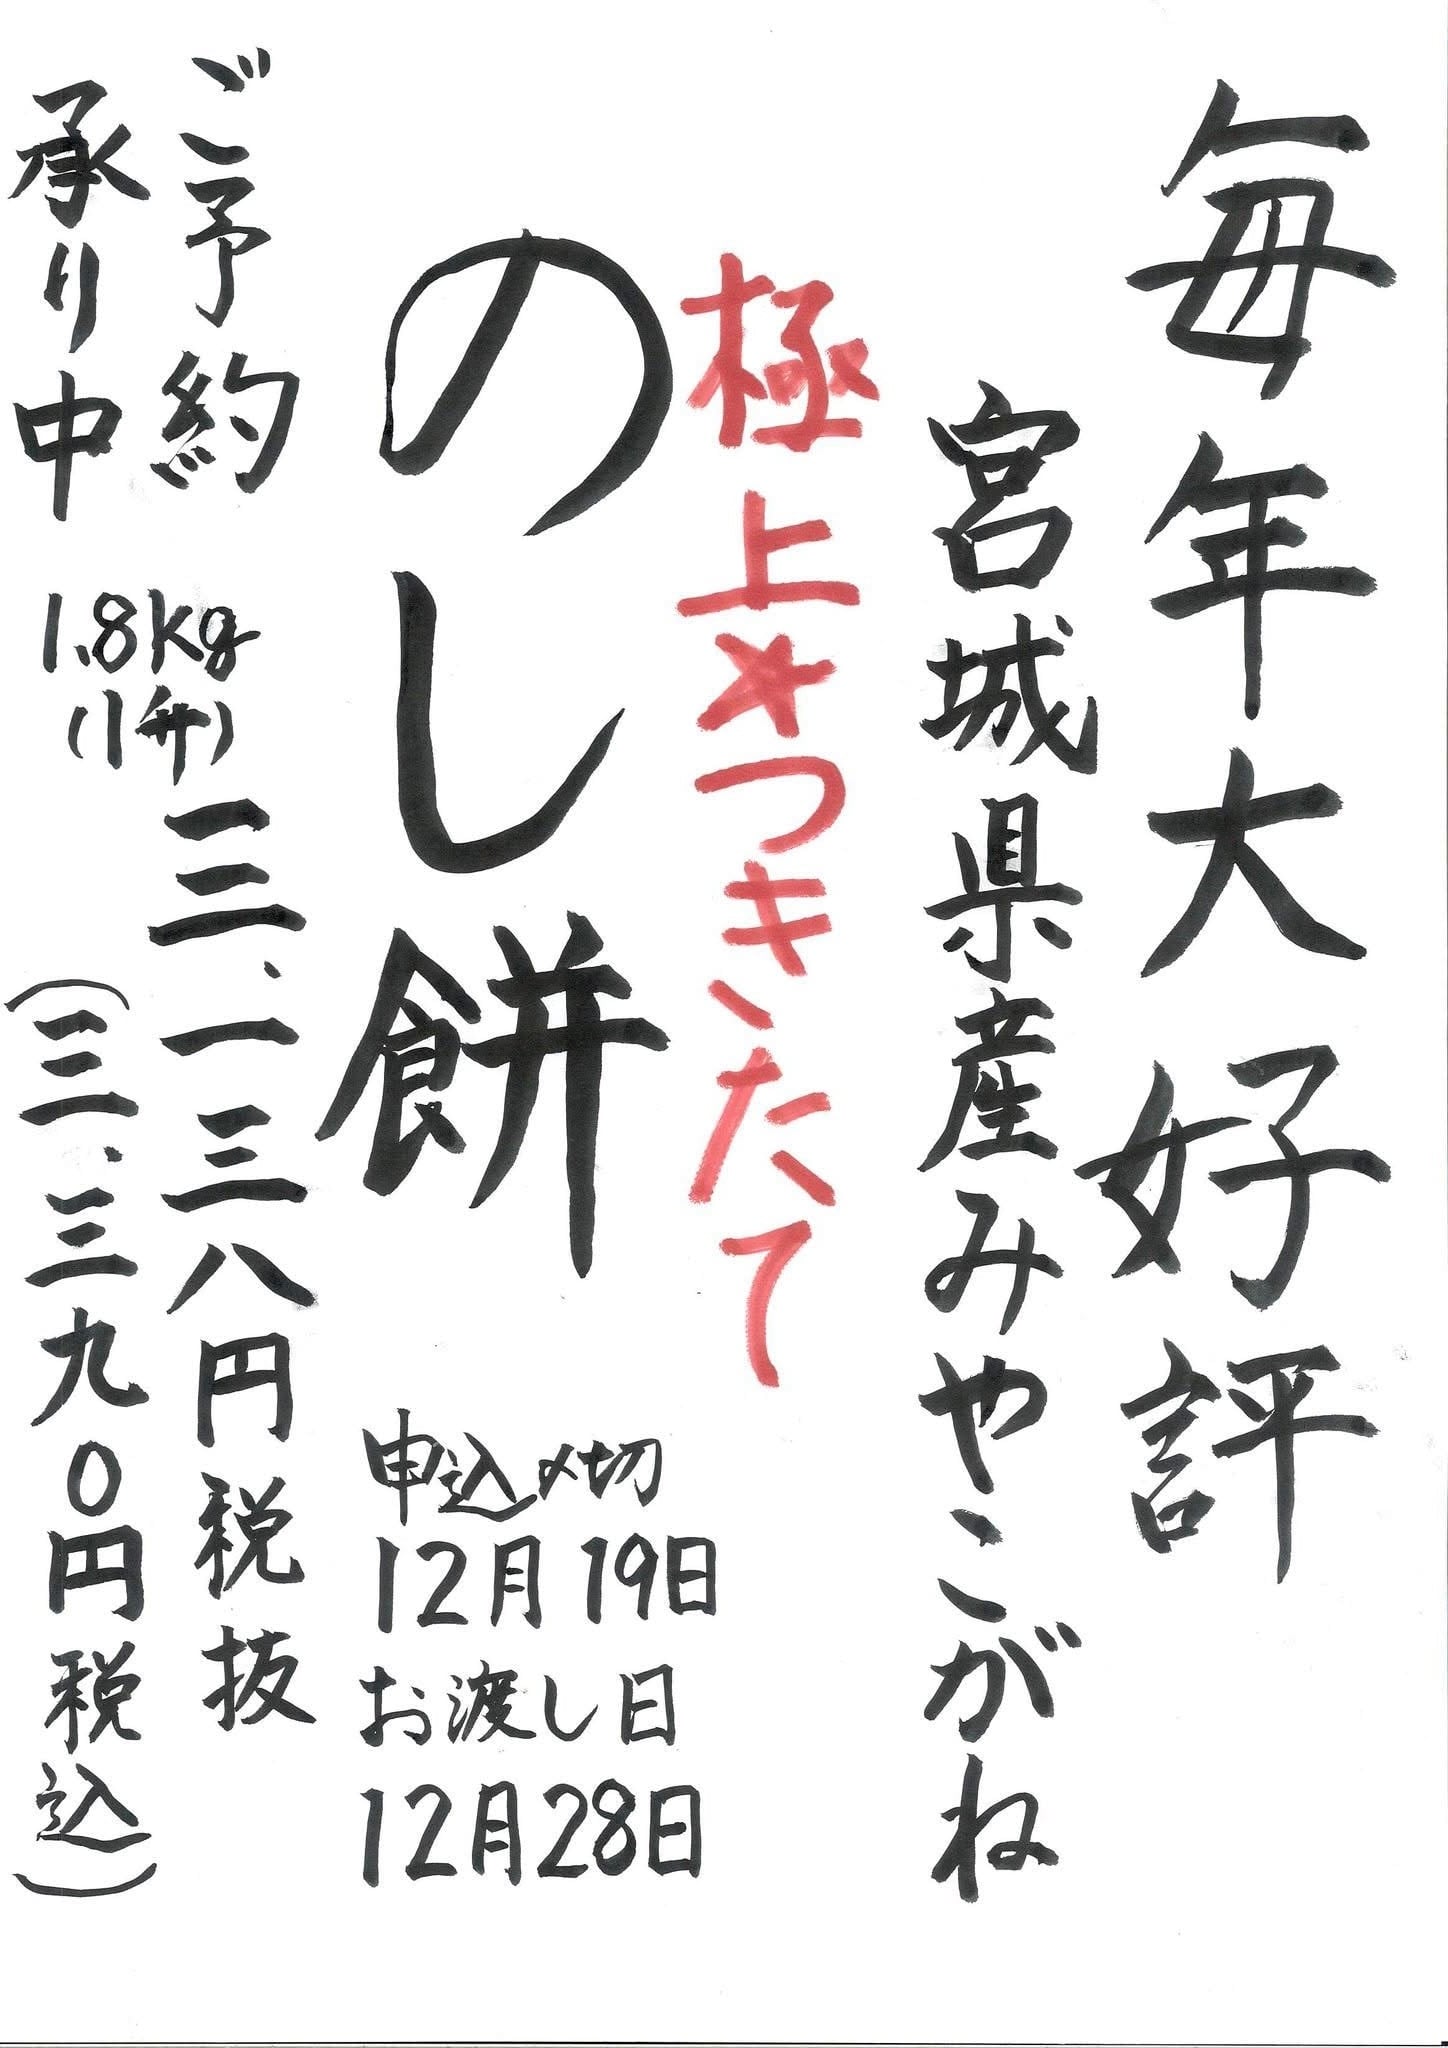 毎年大好評
宮城県産みやこがね
極上★つきたて
のし餅
申込〆切
12月19日
お渡し日
12月28日
ご予約
承り中
1.8kg
(1升)
三、一三八円税抜
(三、三九〇円税込)